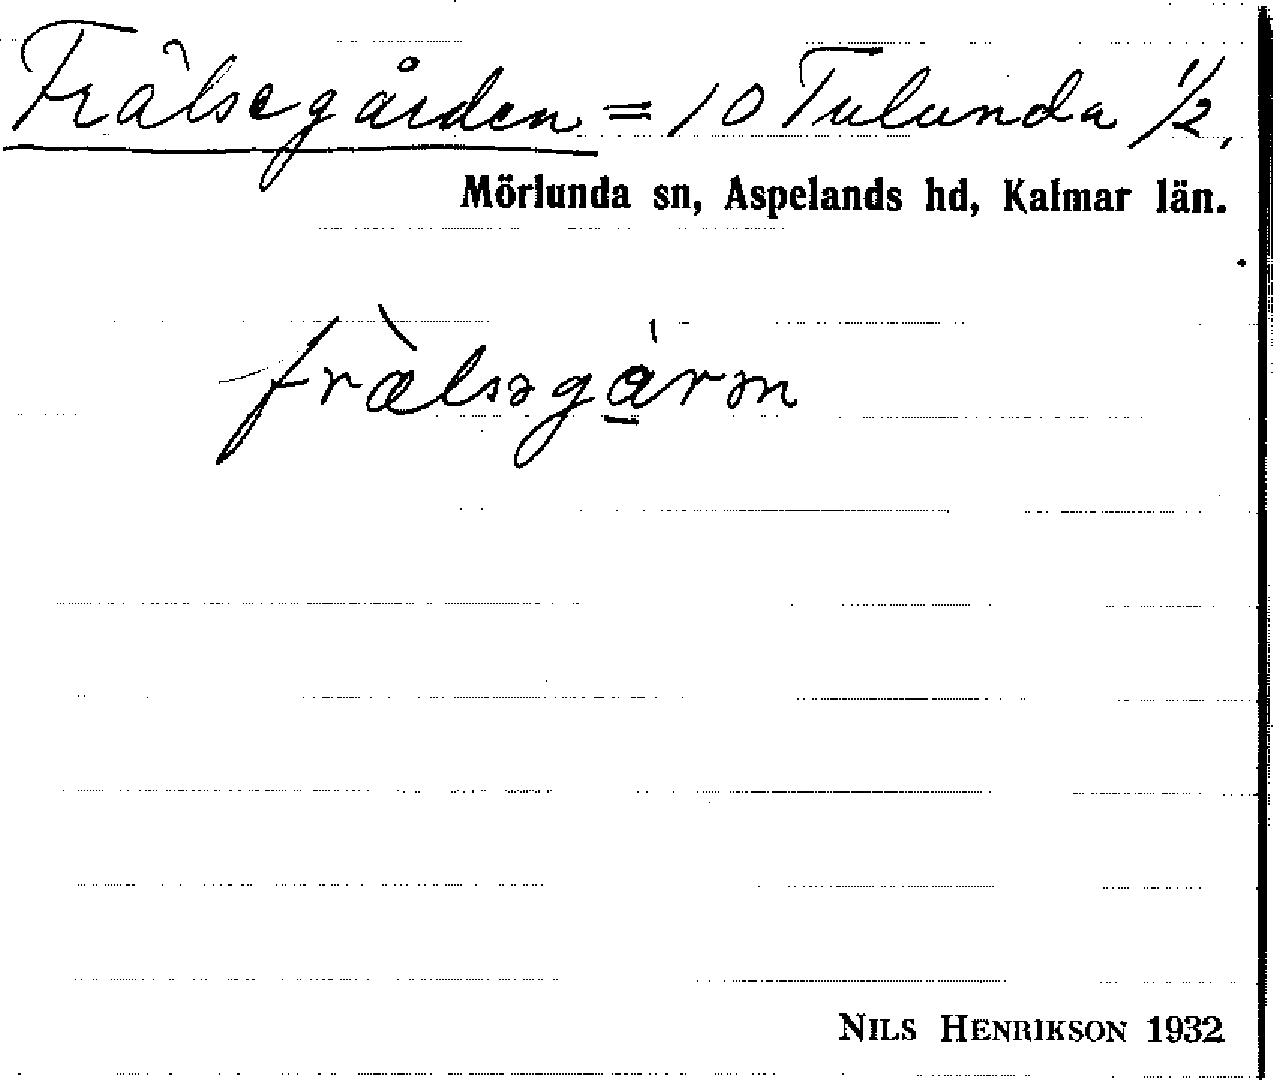 Frälsegården = 10 Tulunda 1/2.
Mörlunda sn, Aspelands hd, Kalmar län.
fræ̀lsəga̱̍rən
NILS HENRIKSON 1932